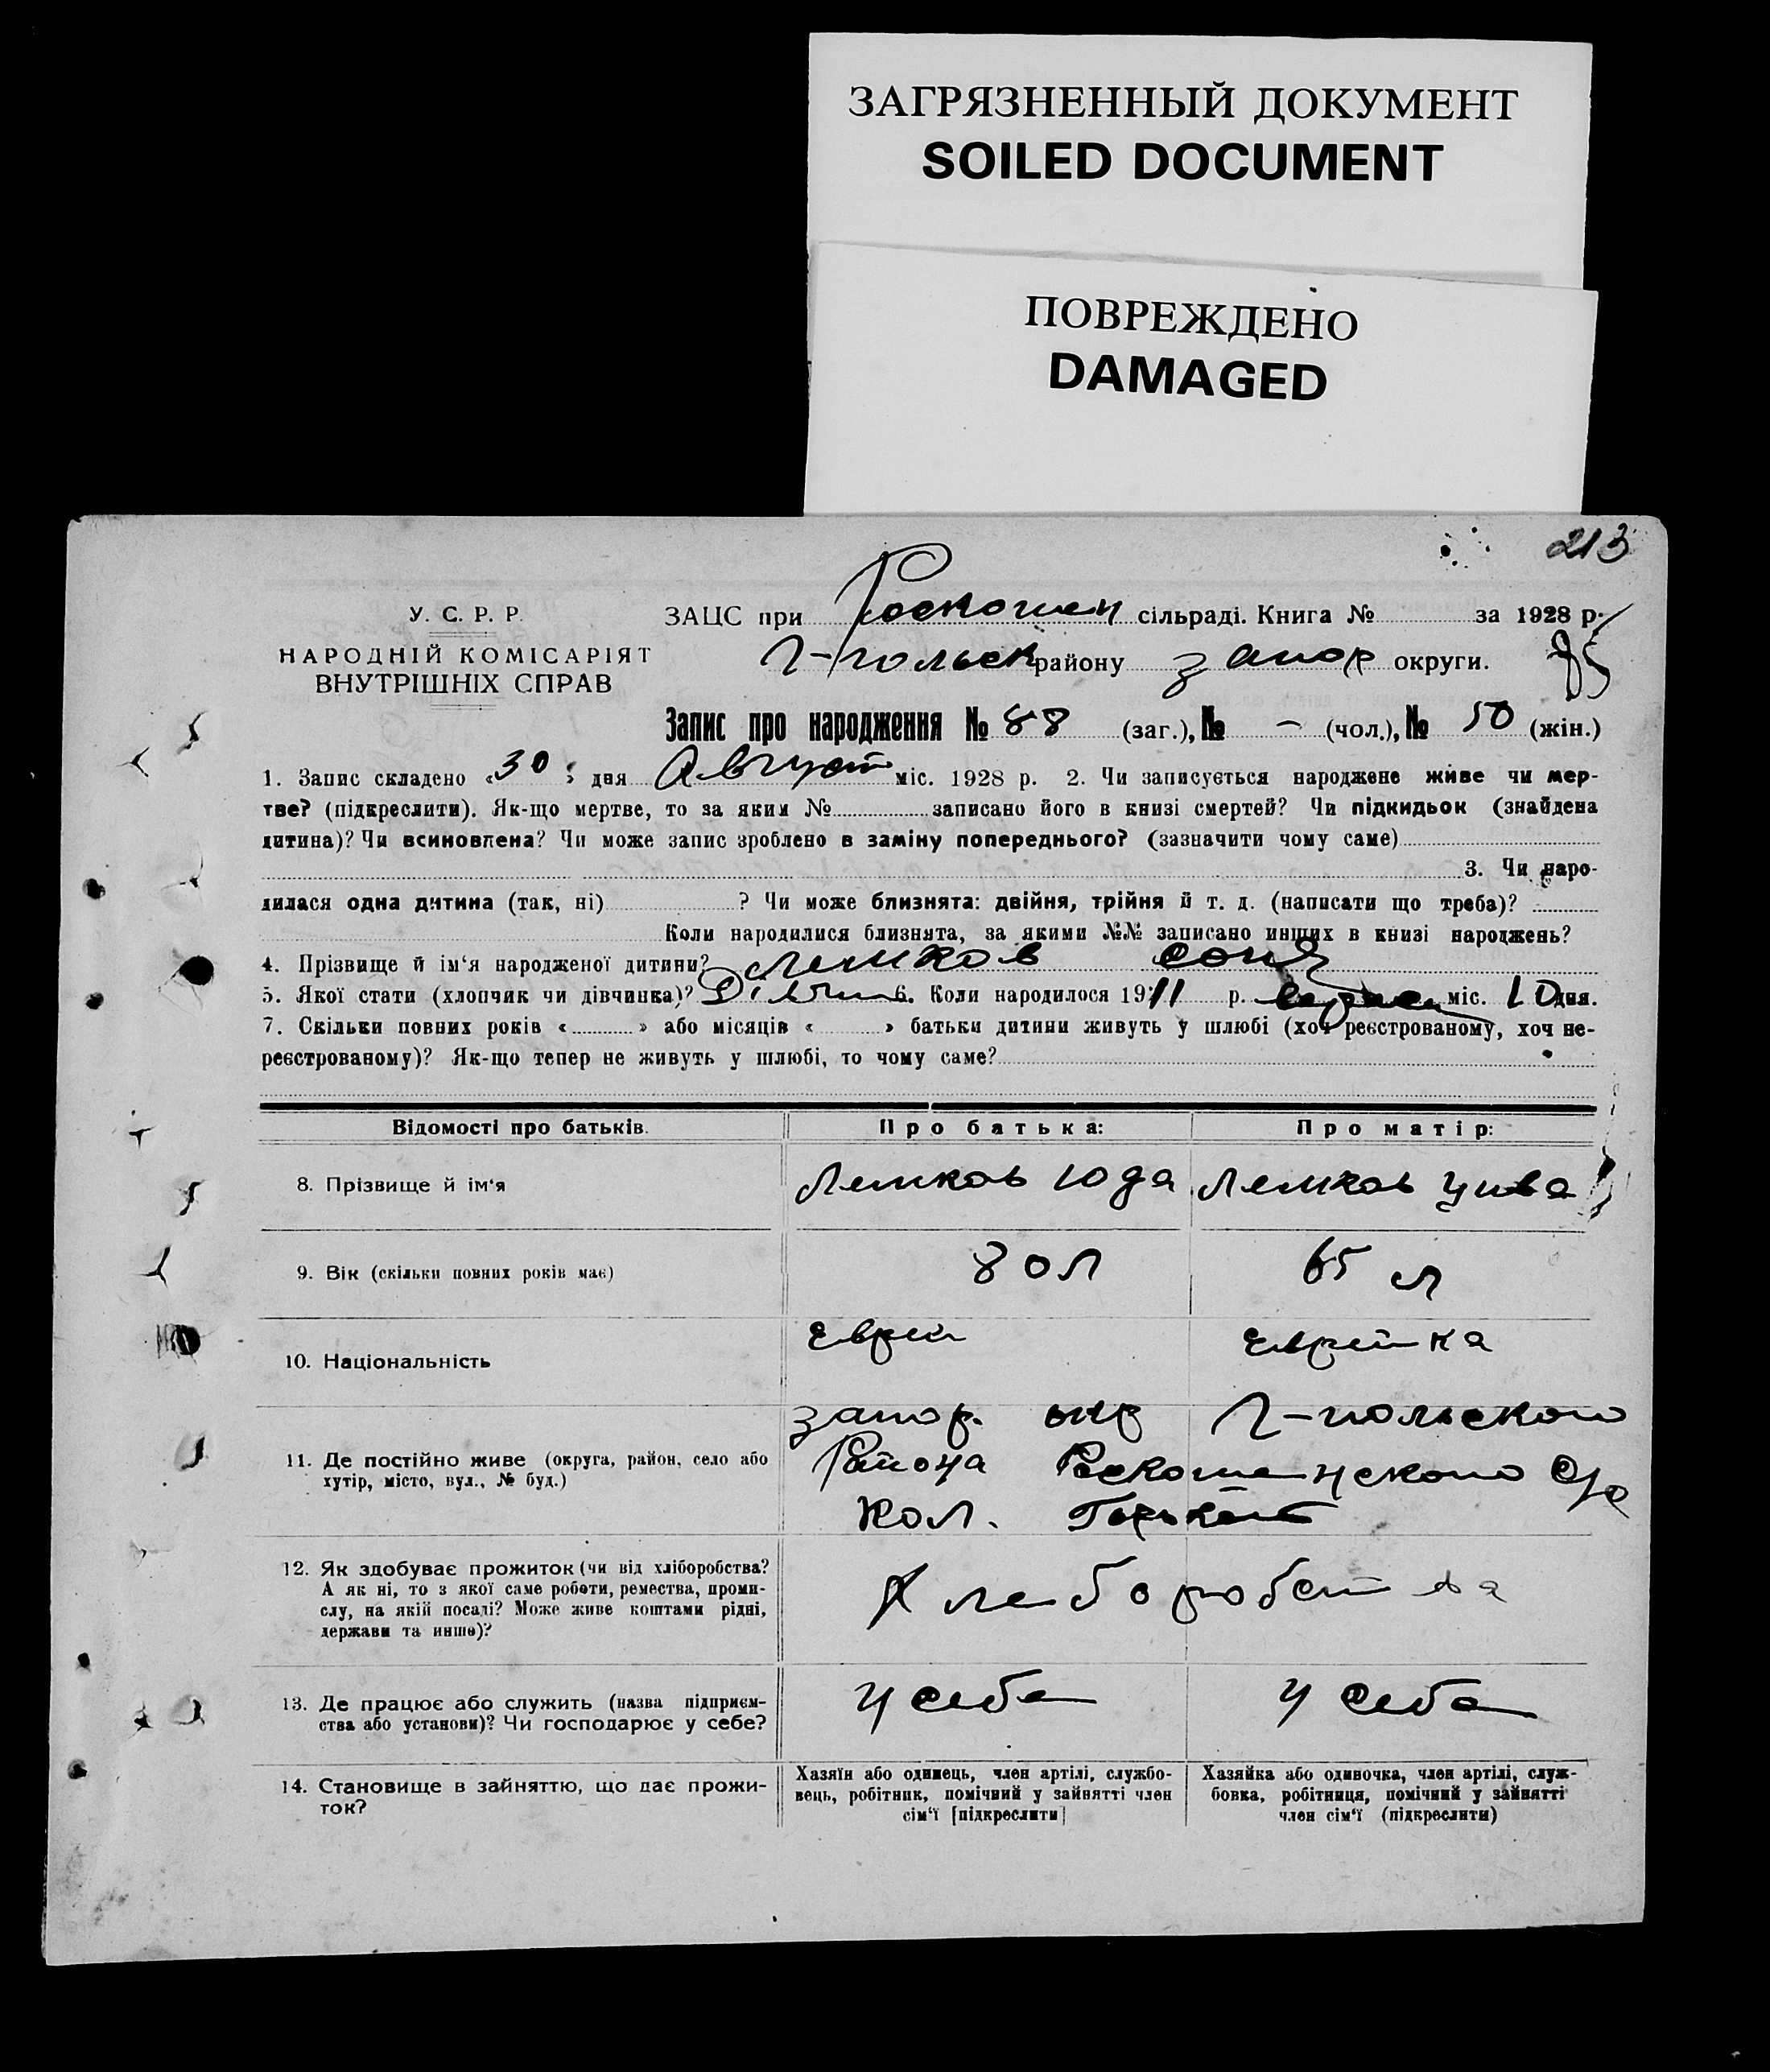 ЗАГРЯЗНЕННЫЙ ДОКУМЕНТ
SOILED DOCUMENT
ПОВРЕЖДЕНО
DAMAGED
213
У. С. Р. Р.
НАРОДНІЙ КОМІСАРІЯТ
ВНУТРІШНІХ СПРАВ
ЗАЦС при Роскошен сільраді. Книга № за 1928 р.
Г-польск району Запор округи.
Запис про народження № 88 (заг.), № – (чол.), № 50 (жін.)
1. Запис складено «30» дня Август міс. 1928 р. 2. Чи записується народжене живе чи мер-
тве? (підкреслити). Як-що мертве, то за яким № записано його в книзі смертей? Чи підкидьок (знайдена
дитина)? Чи всиновлена? Чи може запис зроблено в заміну попереднього? (зазначити чому саме)
3. Чи наро-
дилася одна дитина (так, ні) ? Чи може близнята: двійня, трійня й т. д. (написати що треба)?
Коли народилися близнята, за якими №№ записано инших в книзі народжень?
4. Прізвище й ім‘я народженої дитини? Лемков Соня
5. Якої стати (хлопчик чи дівчинка)? Дівчин 6. Коли народилося 1911 р. міс. 10 дня.
7. Скільки повних років « » або місяців « » батьки дитини живуть у шлюбі (хоч реєстрованому, хоч не-
реєстрованому)? Як-що тепер не живуть у шлюбі, то чому саме?
Відомості про батьків. Про батька: Про матір:
8. Прізвище й ім‘я Лемков Юда Лемков Цива
9. Вік (скільки повних років має) 80 л 65 л
10. Національність Еврей Еврейка
11. Де постійно живе (округа, район, село або
хутір, місто, вул., № буд.)
Запор. окр Г-польского
Района Роскошенского С/р
Кол. Горькая
12. Як здобуває прожиток (чи від хліборобства?
А як ні, то з якої саме роботи, ремества, проми-
слу, на якій посаді? Може живе коштами рідні,
держави та инше)?
Хлеборобства
13. Де працює або служить (назва підприєм-
ства або установи)? Чи господарює у себе?
У себе У себе
14. Становище в зайняттю, що дає прожи-
ток?
Хазяїн або одинець, член артілі, службо-
вець, робітник, помічний у зайнятті член
сім‘ї [підкреслити]
Хазяйка або одиночка, член артілі, служ-
бовка, робітниця, помічний у зайнятті
член сім‘ї (підкреслити)